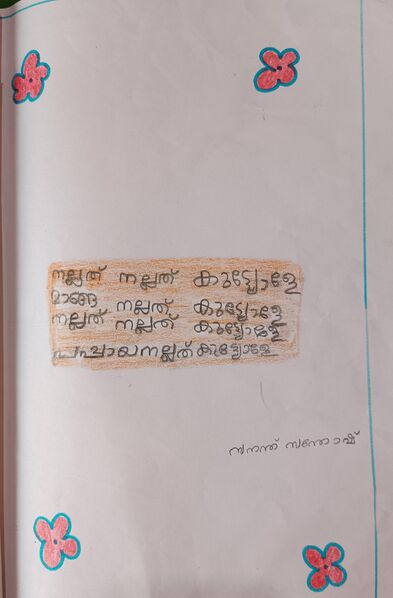 നല്ലത് നല്ലത് കുട്ട്യോളേ
മാങ്ങ നല്ലത് കുട്ട്യോളേ
നല്ലത് നല്ലത് കുട്ട്യോളേ
ചപ്പായ നല്ലത് കുട്ട്യോളേ
സനന്ത് സന്തോഷ്